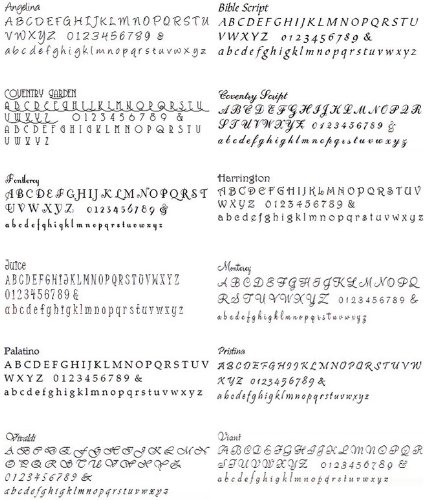 Angelina
ABCDEFGHIJKLMNOPQRSTU
VWXYZ 0123456789 &
abcdefghigklmnopqrstuvwxyz
Bible Script
ABCDEFGHIJKLMNOPQRSTU
VWXYZ 0123456789 &
abcdefghigklmnopqrstuvwxyz
COVENTRY GARDEN
ABCDEFGHIJKLMNOPQRSTU
VWXYZ 0123456789 &
ABCDEFGHIGKLMNOPQRSTUVWXYZ
Coventry Script
ABCDEFGHIJKLMNOPQR
STUVWXYZ 0123456789 &
abcdefghigklmnopqrstuvwxyz
Fontleroy
ABCDEFGHIJKLMNOPQRST
UVWXYZ 0123456789 &
abcdefghigklmnopqrstuvwxyz
Harrington
ABCDEFGHIJKLMNOPQRSTUV
WXYZ 0123456789 &
abcdefghigklmnopqrstuvwxyz
Juice
ABCDEFGHIJKLMNOPQRSTUVWXYZ
0123456789 &
abcdefghigklmnopqrstuvwxyz
Monterey
ABCDEFGHIJKLMNOPQ
RSTUVWXYZ 0123456789 &
abcdefghigklmnopqrstuvwxyz
Palatino
ABCDEFGHIJKLMNOPQRSTUV
WXYZ 0123456789 &
abcdefghigklmnopqrstuvwxyz
Pristina
ABCDEFGHIJKLMNOPQRSTUVW
XYZ 0123456789 &
abcdefghigklmnopqrstuvwxyz
Vivaldi
ABCDEFGHIJKLMN
OPQRSTUVWXYZ
0123456789 &
abcdefghigklmnopqrstuvwxyz
Viant
ABCDEFGHIJKLMNOPQR
STUVWXYZ 0123456789 &
abcdefghigklmnopqrstuvwxyz